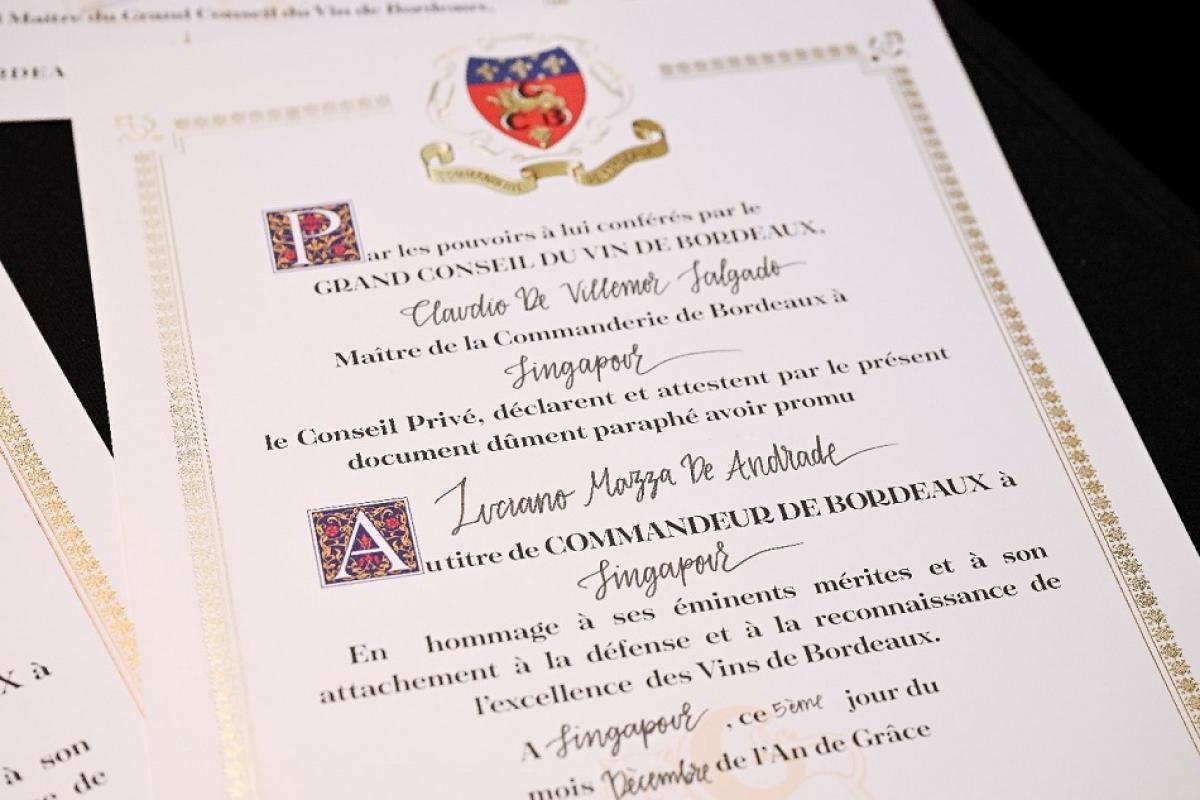 Maître du Grand Conseil du Vin de Bordeaux.
RDEA
C
C B
COMMANDERIE BORDEAUX
Par les pouvoirs à lui conférés par le
GRAND CONSEIL DU VIN DE BORDEAUX,
Claudio De Villemor Salgado
Maître de la Commanderie de Bordeaux à
Singapour
le Conseil Privé, déclarent et attestent par le présent
document dûment paraphé avoir promu
Luciano Mazza De Andrade
Au titre de COMMANDEUR DE BORDEAUX à
Singapour
En hommage à ses éminents mérites et à son
attachement à la défense et à la reconnaissance de
l'excellence des Vins de Bordeaux.
A Singapour, ce 5ème jour du
mois Dècembre de l'An de Grâce
X à
à son
de